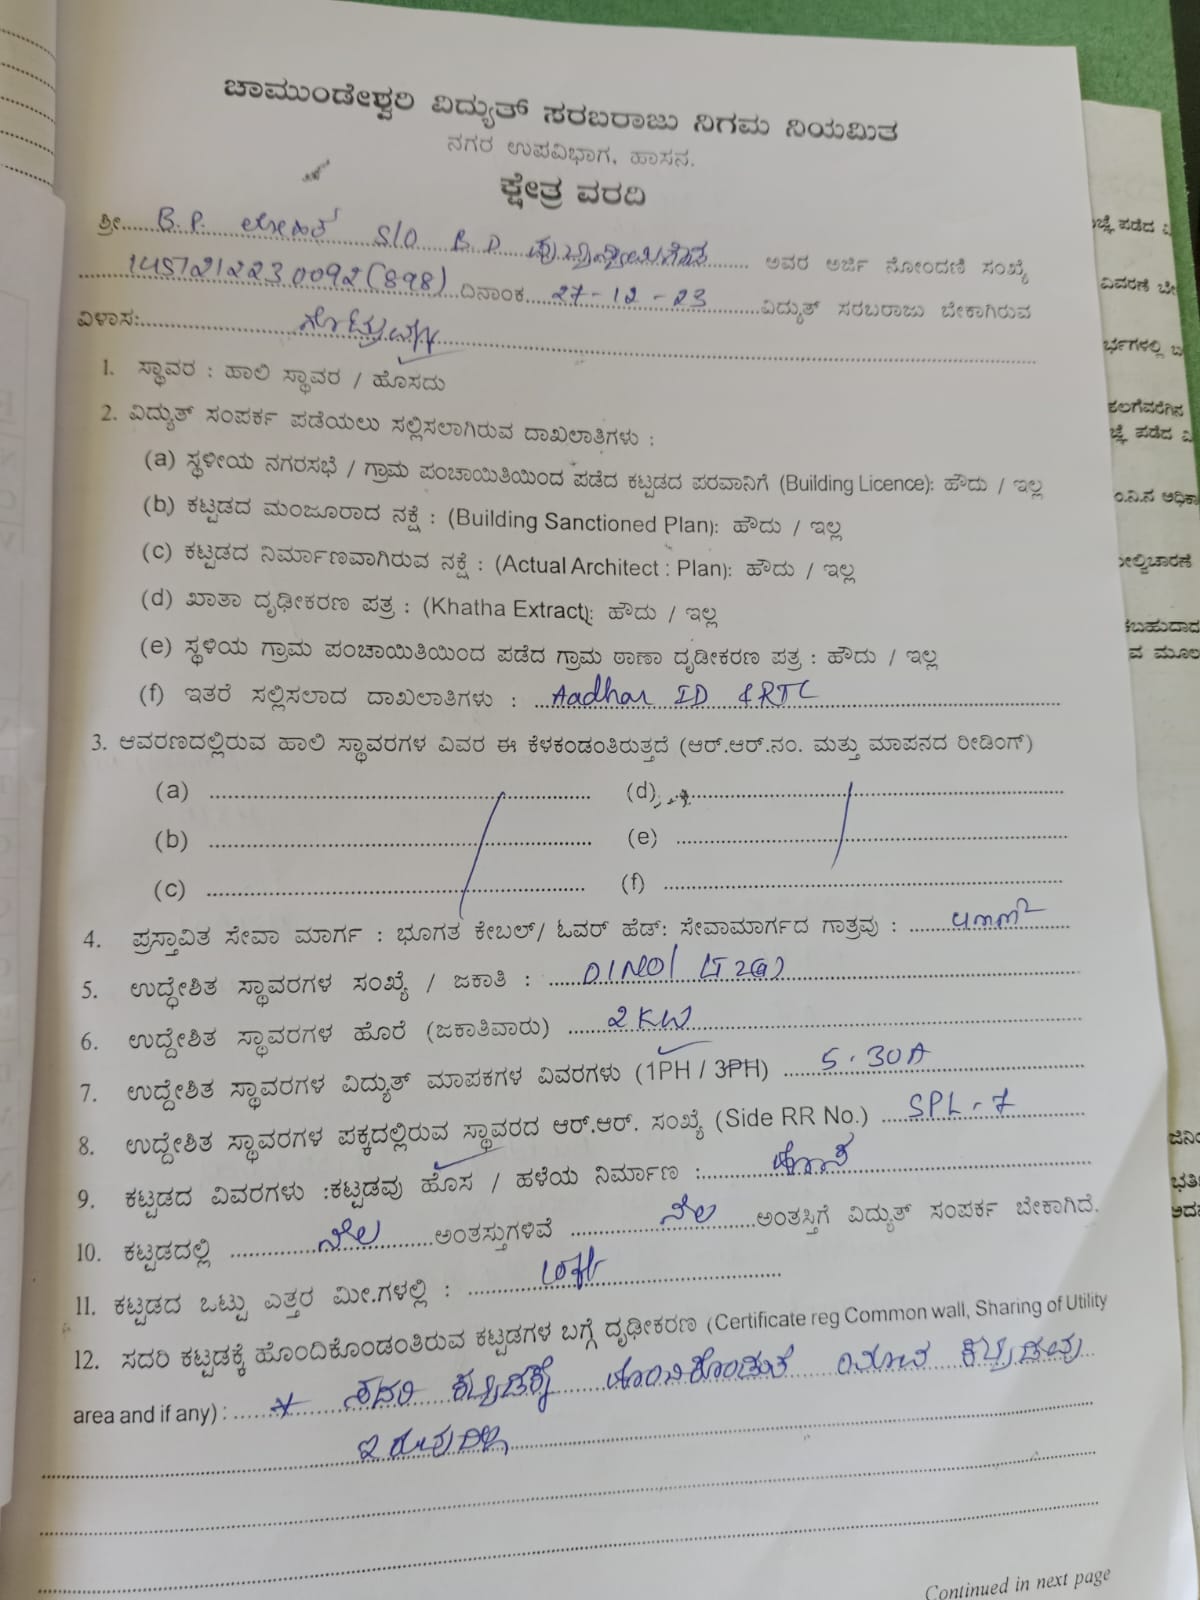 ಚಾಮುಂಡೇಶ್ವರಿ ವಿದ್ಯುತ್ ಸರಬರಾಜು ನಿಗಮ ನಿಯಮಿತ
ನಗರ ಉಪವಿಭಾಗ, ಹಾಸನ.
ಕ್ಷೇತ್ರ ವರದಿ
ಶ್ರೀ B.P. ಲೋಹಿತ್ S/O B.D ಅವರ ಅರ್ಜಿ ನೋಂದಣಿ ಸಂಖ್ಯೆ
1457212230092(898) ದಿನಾಂಕ 27-12-23 ವಿದ್ಯುತ್ ಸರಬರಾಜು ಬೇಕಾಗಿರುವ
ವಿಳಾಸ:
1. ಸ್ಥಾವರ : ಹಾಲಿ ಸ್ಥಾವರ / ಹೊಸದು
2. ವಿದ್ಯುತ್ ಸಂಪರ್ಕ ಪಡೆಯಲು ಸಲ್ಲಿಸಲಾಗಿರುವ ದಾಖಲಾತಿಗಳು :
(a) ಸ್ಥಳೀಯ ನಗರಸಭೆ / ಗ್ರಾಮ ಪಂಚಾಯಿತಿಯಿಂದ ಪಡೆದ ಕಟ್ಟಡದ ಪರವಾನಿಗೆ (Building Licence): ಹೌದು / ಇಲ್ಲ
(b) ಕಟ್ಟಡದ ಮಂಜೂರಾದ ನಕ್ಷೆ : (Building Sanctioned Plan): ಹೌದು / ಇಲ್ಲ
(c) ಕಟ್ಟಡದ ನಿರ್ಮಾಣವಾಗಿರುವ ನಕ್ಷೆ : (Actual Architect : Plan): ಹೌದು / ಇಲ್ಲ
(d) ಖಾತಾ ದೃಢೀಕರಣ ಪತ್ರ : (Khatha Extract): ಹೌದು / ಇಲ್ಲ
(e) ಸ್ಥಳಿಯ ಗ್ರಾಮ ಪಂಚಾಯಿತಿಯಿಂದ ಪಡೆದ ಗ್ರಾಮ ಠಾಣಾ ದೃಡೀಕರಣ ಪತ್ರ : ಹೌದು / ಇಲ್ಲ
(f) ಇತರೆ ಸಲ್ಲಿಸಲಾದ ದಾಖಲಾತಿಗಳು : Aadhar ID & RTC
3. ಆವರಣದಲ್ಲಿರುವ ಹಾಲಿ ಸ್ಥಾವರಗಳ ವಿವರ ಈ ಕೆಳಕಂಡಂತಿರುತ್ತದೆ (ಆರ್.ಆರ್.ನಂ. ಮತ್ತು ಮಾಪನದ ರೀಡಿಂಗ್)
(a) (d)
(b) (e)
(c) (f)
4. ಪ್ರಸ್ತಾವಿತ ಸೇವಾ ಮಾರ್ಗ : ಭೂಗತ ಕೇಬಲ್/ ಓವರ್ ಹೆಡ್: ಸೇವಾಮಾರ್ಗದ ಗಾತ್ರವು : 4mm²
5. ಉದ್ಧೇಶಿತ ಸ್ಥಾವರಗಳ ಸಂಖ್ಯೆ / ಜಕಾತಿ : 01NO/ LT2(a)
6. ಉದ್ದೇಶಿತ ಸ್ಥಾವರಗಳ ಹೊರೆ (ಜಕಾತಿವಾರು) 2KW
7. ಉದ್ದೇಶಿತ ಸ್ಥಾವರಗಳ ವಿದ್ಯುತ್ ಮಾಪಕಗಳ ವಿವರಗಳು (1PH / 3PH) 5-30A
8. ಉದ್ದೇಶಿತ ಸ್ಥಾವರಗಳ ಪಕ್ಕದಲ್ಲಿರುವ ಸ್ಥಾವರದ ಆರ್.ಆರ್. ಸಂಖ್ಯೆ (Side RR No.) SPL-7
9. ಕಟ್ಟಡದ ವಿವರಗಳು :ಕಟ್ಟಡವು ಹೊಸ / ಹಳೆಯ ನಿರ್ಮಾಣ : ಹೊಸ
10. ಕಟ್ಟಡದಲ್ಲಿ ನೆಲ ಅಂತಸ್ತುಗಳಿವೆ ನೆಲ ಅಂತಸ್ತಿಗೆ ವಿದ್ಯುತ್ ಸಂಪರ್ಕ ಬೇಕಾಗಿದೆ.
11. ಕಟ್ಟಡದ ಒಟ್ಟು ಎತ್ತರ ಮೀ.ಗಳಲ್ಲಿ : 10ft
12. ಸದರಿ ಕಟ್ಟಡಕ್ಕೆ ಹೊಂದಿಕೊಂಡಂತಿರುವ ಕಟ್ಟಡಗಳ ಬಗ್ಗೆ ದೃಢೀಕರಣ (Certificate reg Common wall, Sharing of Utility
area and if any) : * ಸದರಿ ಕಟ್ಟಡಕ್ಕೆ ಹೊಂದಿಕೊಂಡಂತೆ ಯಾವ ಕಟ್ಟಡವು
ಇರುವುದಿಲ್ಲ
Continued in next page